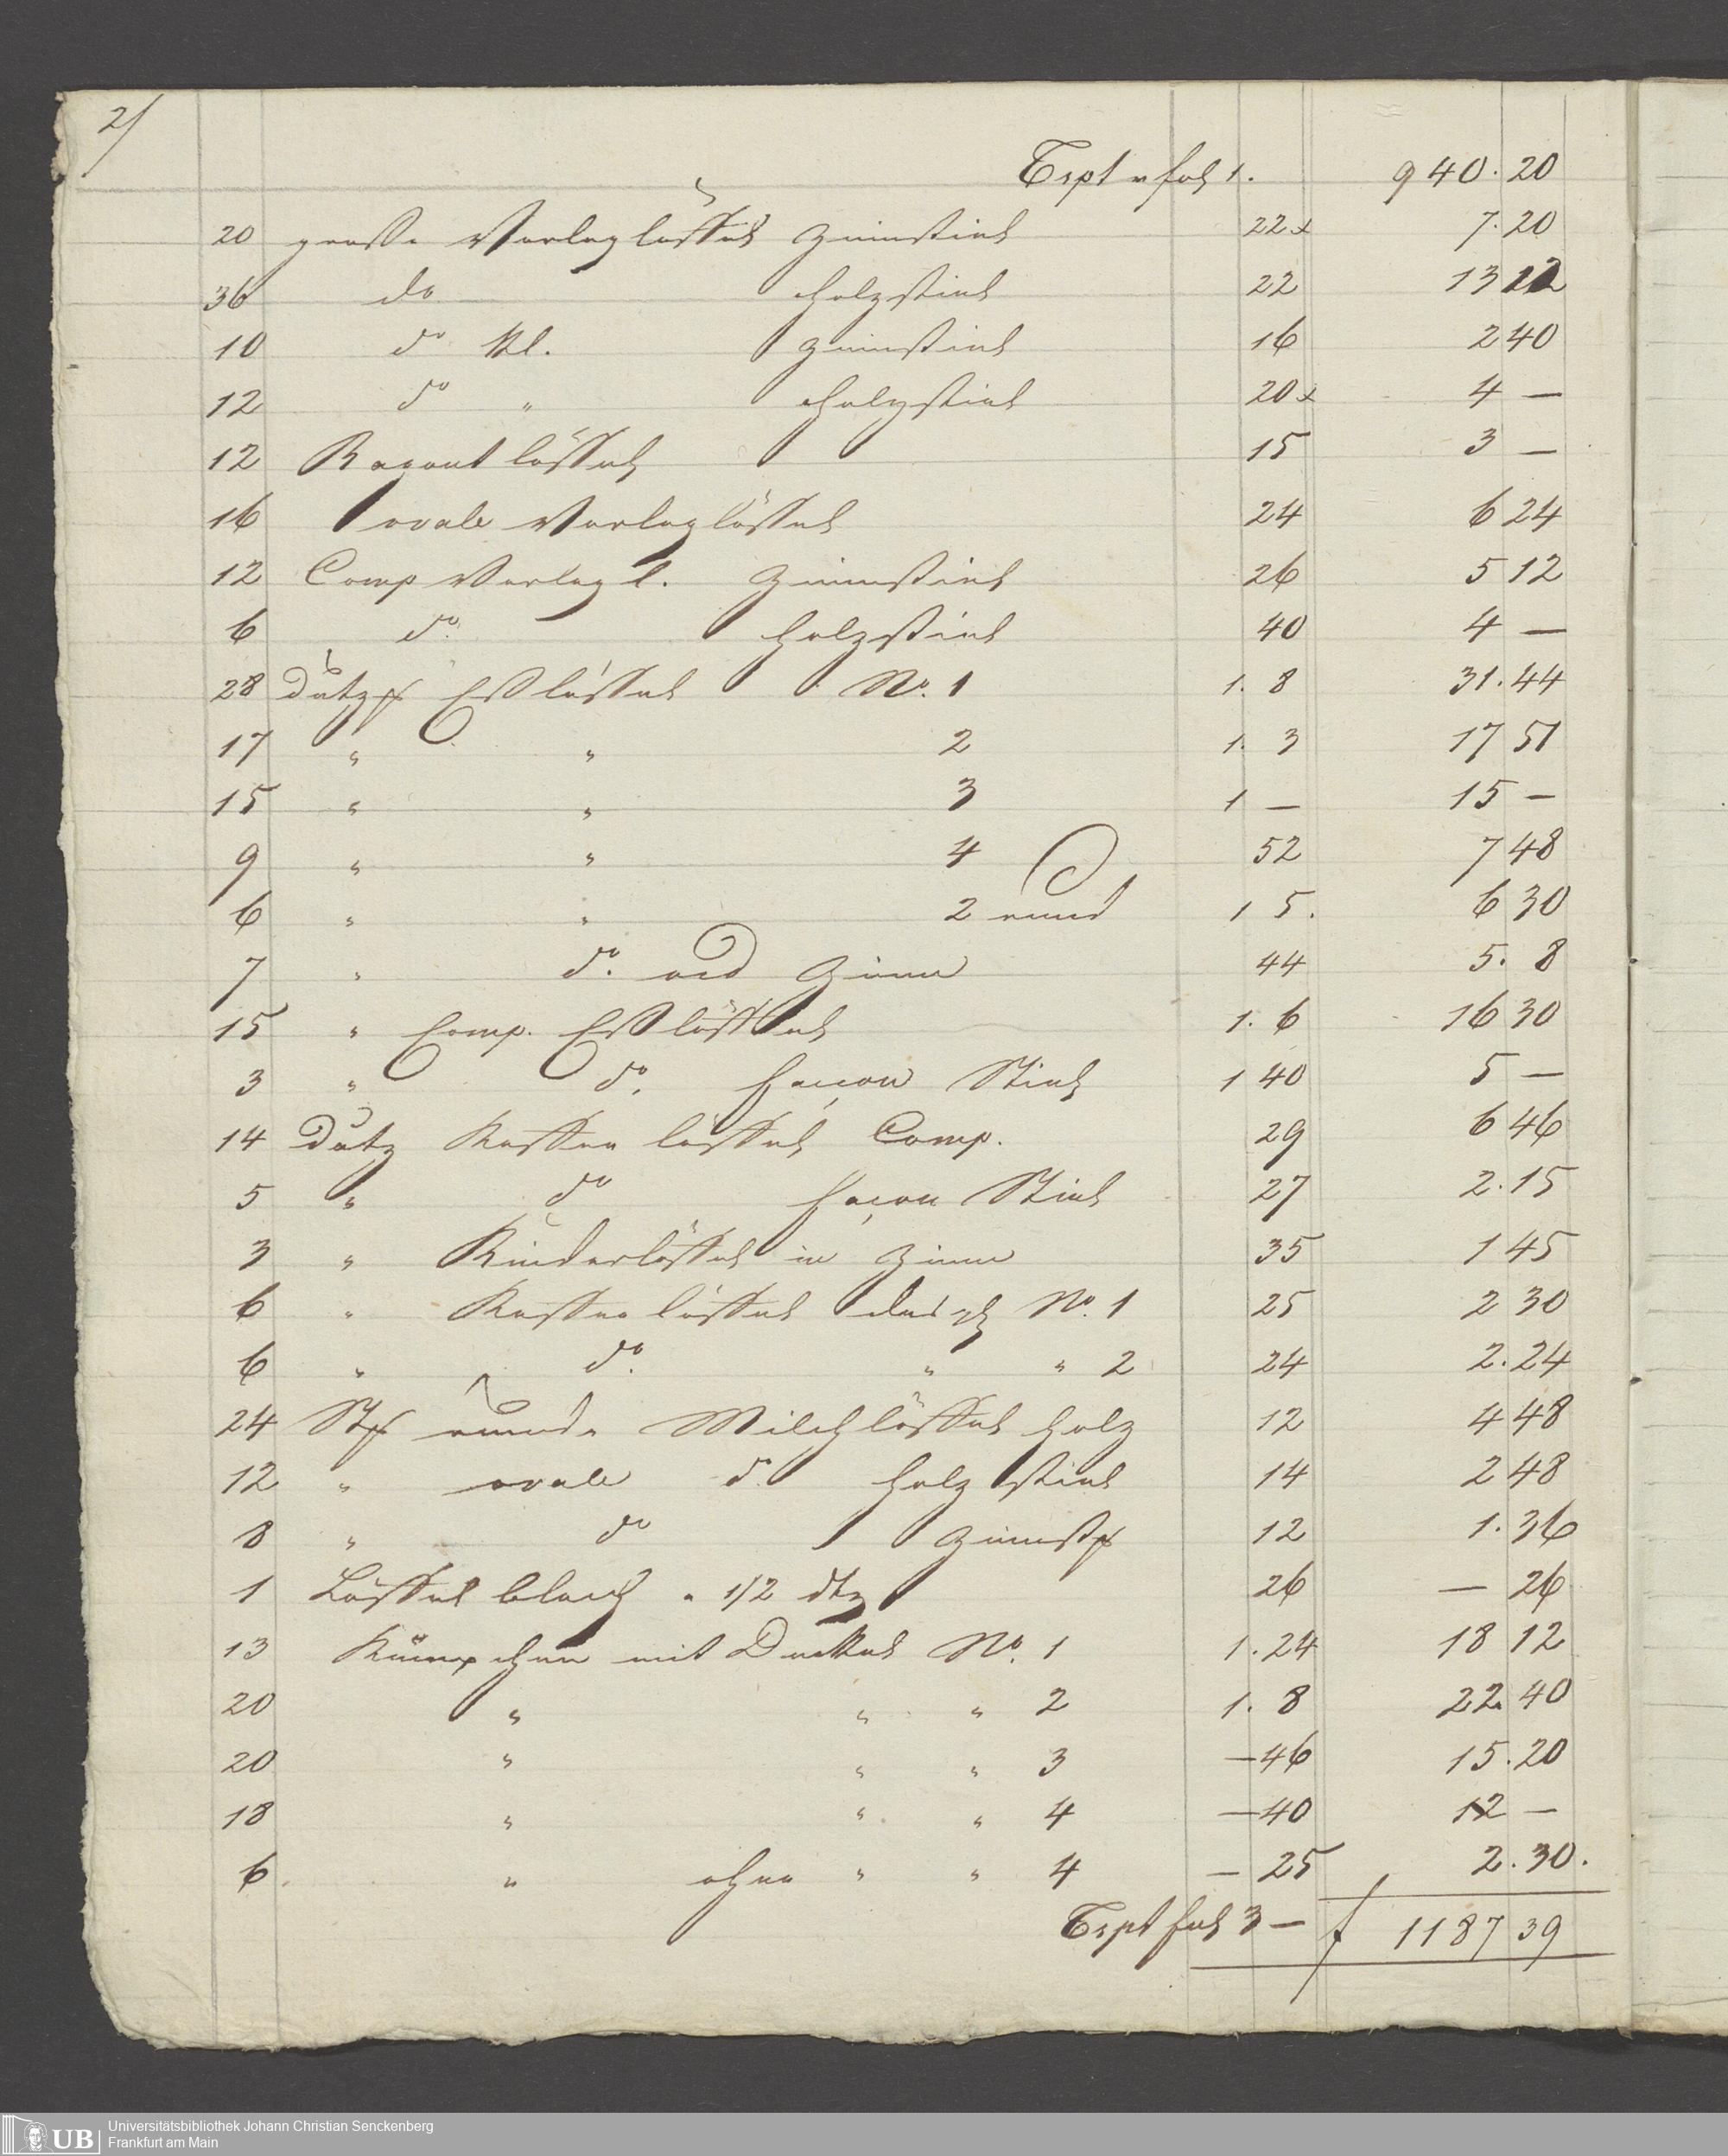 2/
Trspt v fol 1. 940.20
20 große Vorleglöffel Zinnstiel 22x 7.20
36 do Holzstiel 22 13 12
10 do kl. Zinnstiel 16 2 40
12 do " Holzstiel 20x 4 —
12 Ragout löffel 15 3 —
16 ovale Vorleglöffel 24 6 24
12 Comp Vorlegl. Zinnstiel 26 5 12
6 do. Holzstiel 40 4 —
28 Dutz Eßlöffel No. 1 1. 8 31.44
17 " " 2 1. 3 17 51
15 " " 3 1 — 15 —
9 " " 4 52 7 48
6 " " 2 rund 1 5. 6 30
7 " do. ord Zinn 44 5. 8
15 " Comp. Eßlöffel 1. 6 16 30
3 " do. façon Stiel 1 40 5 —
14 Dutz Kaffee löffel Comp. 29 6 46
5 " do façon Stiel 27 2.15
3 " Kinderlöffel in Zinn 35 1 45
6 " Kaffee löffel No. 1 25 2 30
6 " do. " " 2 24 2.24
24 St runde Milchlöffel holz 12 4 48
12 " ovale do. holz stiel 14 2 48
8 " do Zinnst 12 1.36
1 Löffel blech a 1/2 dtz 26 — 26
13 Kümpchen mit Deckel No. 1 1.24 18 12
20 " " " 2 1. 8 22.40
20 " " " 3 — 46 15.20
18 " " " 4 — 40 12 —
6 " ohne " " 4 — 25 2.30.
Trspt fol 3 — f 1187 39
UB Universitätsbibliothek Johann Christian Senckenberg
Frankfurt am Main